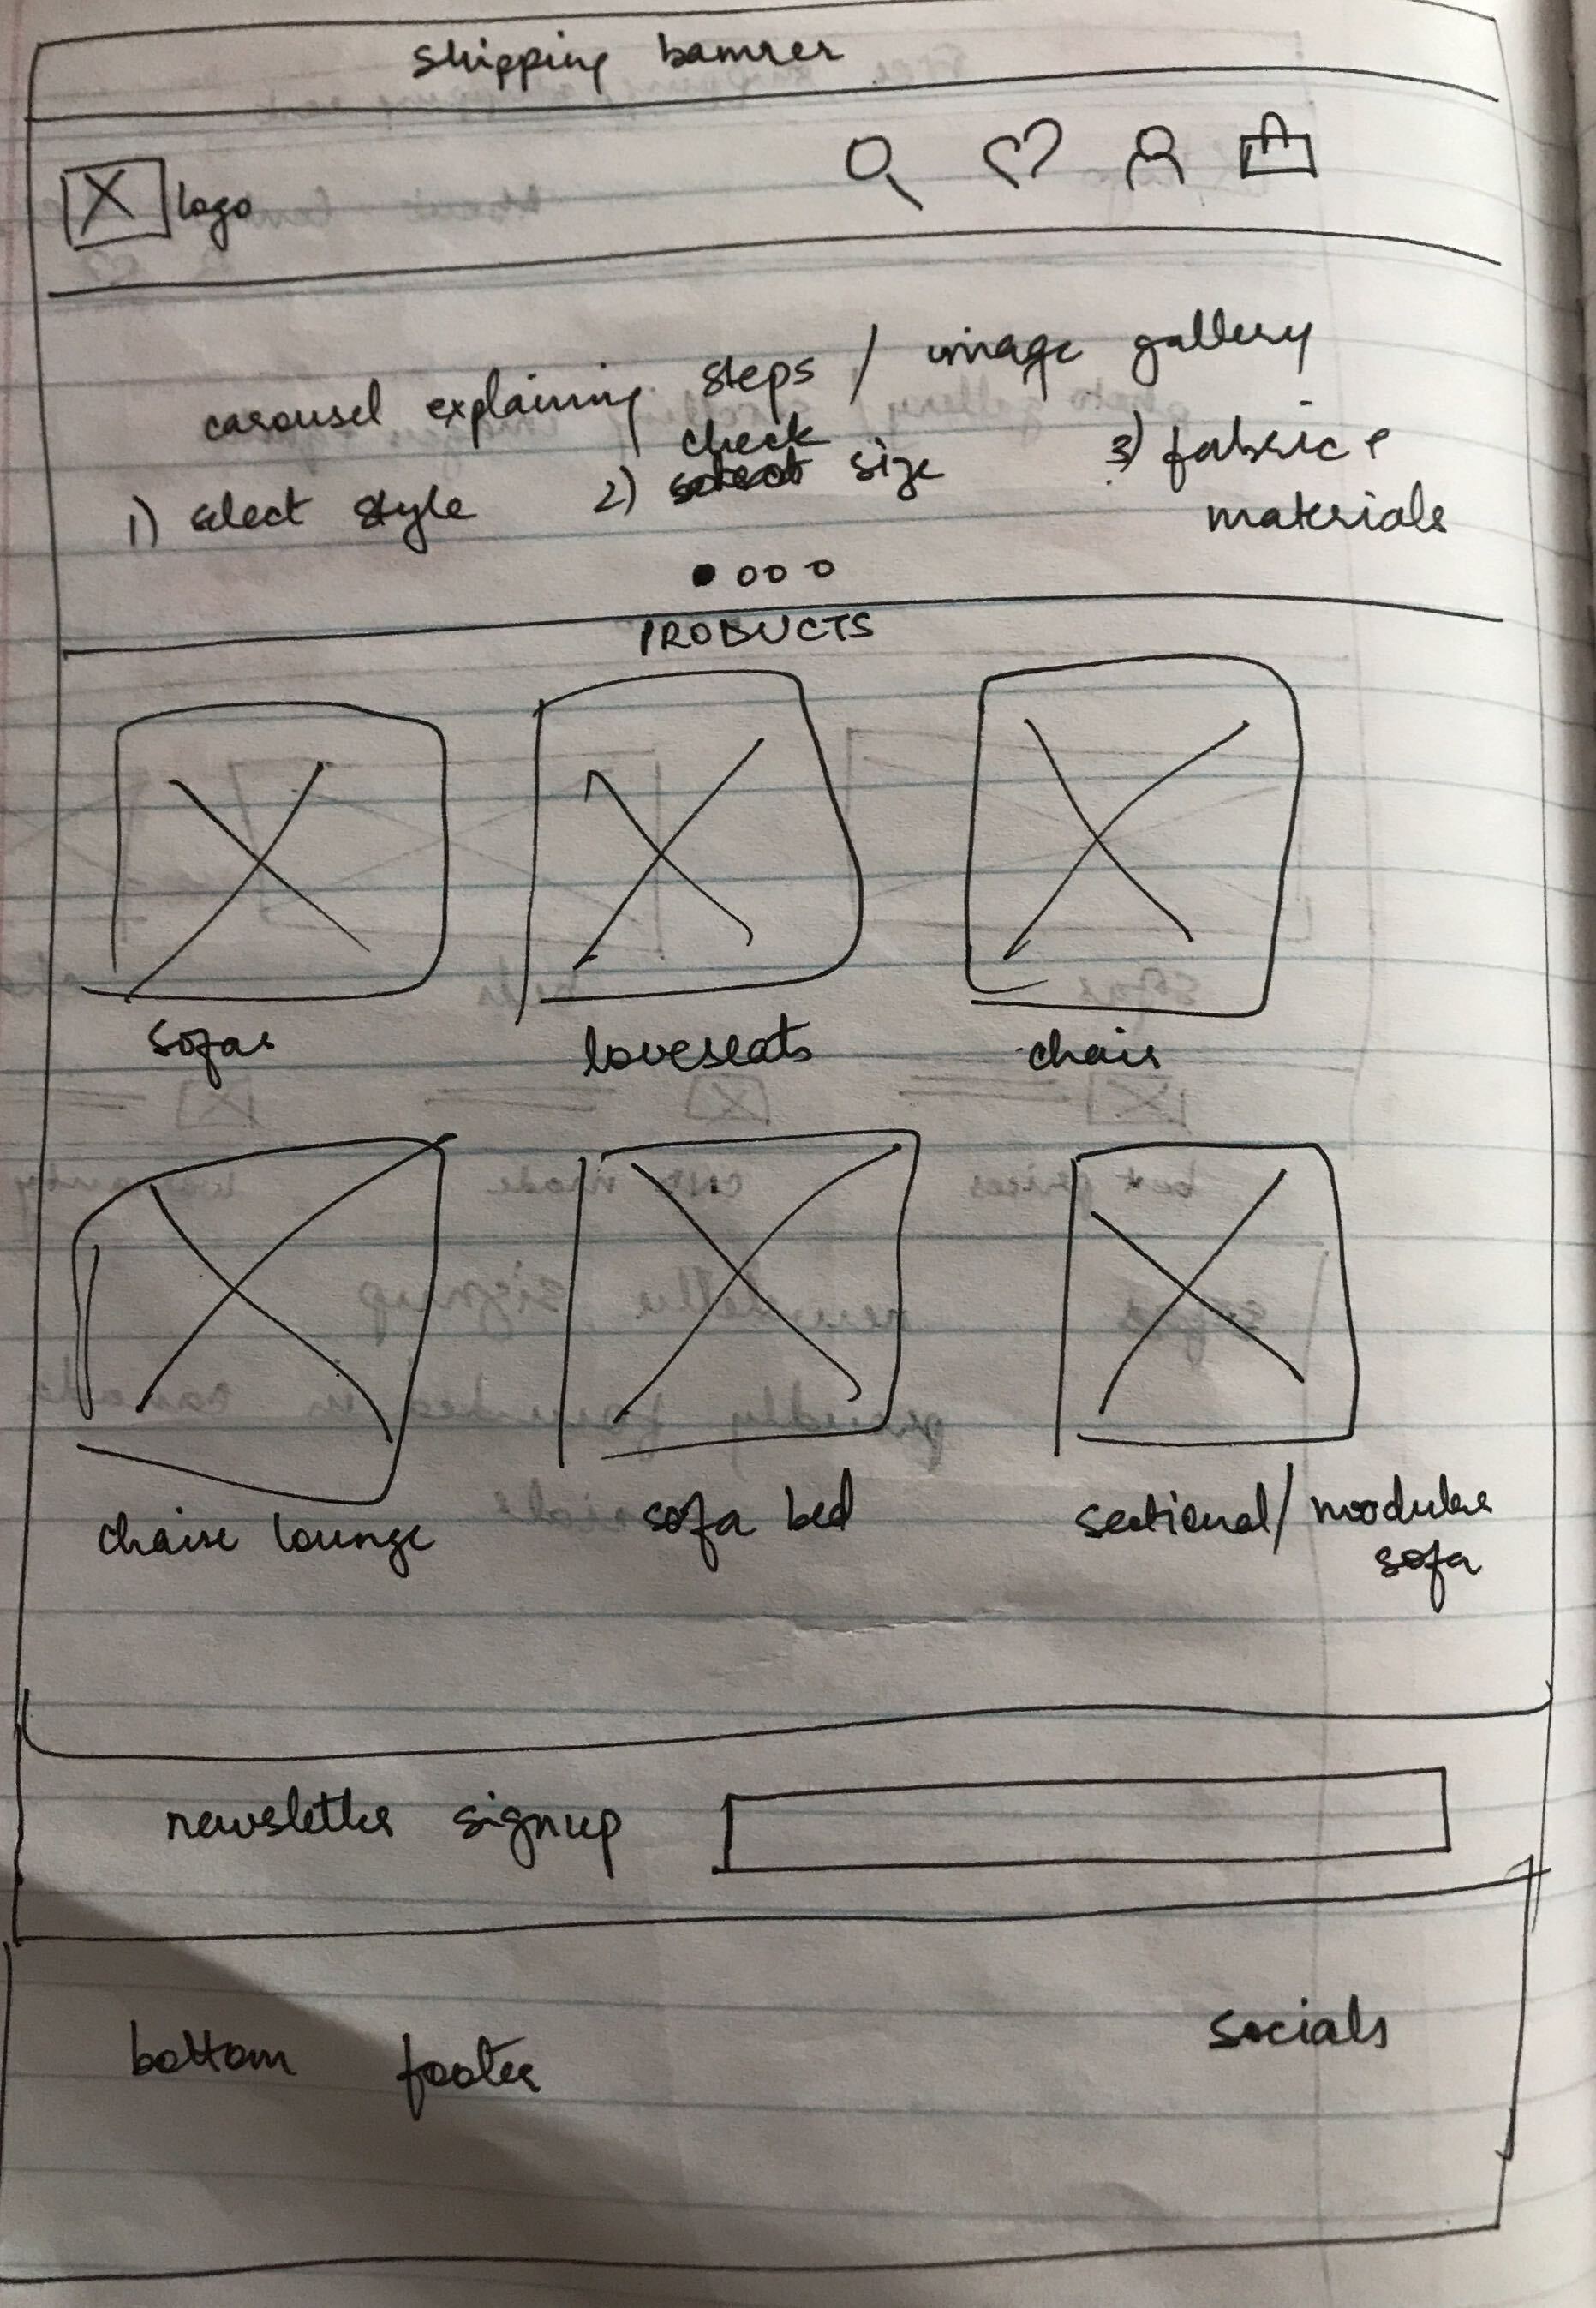 shipping banner
logo
carousel explaining steps / image gallery
1) select style 2) check size 3) fabric &
materials
PRODUCTS
sofas loveseats chair
chaise lounge sofa bed sectional/modular
sofa
newsletter signup
bottom footer socials